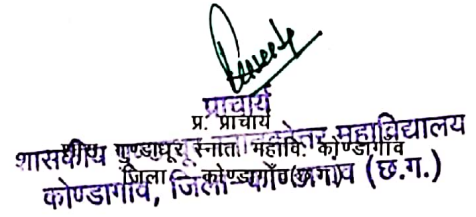 प्राचार्य
प्र. प्राचार्य
शासकीय गुण्डाधूर स्नातकोत्तर महाविद्यालय
गुण्डाधूर स्नात. महावि. कोण्डागांव
कोण्डागांव, जिला कोण्डागांव (छ.ग.)
जिला कोण्डागाँव (छ.ग.)